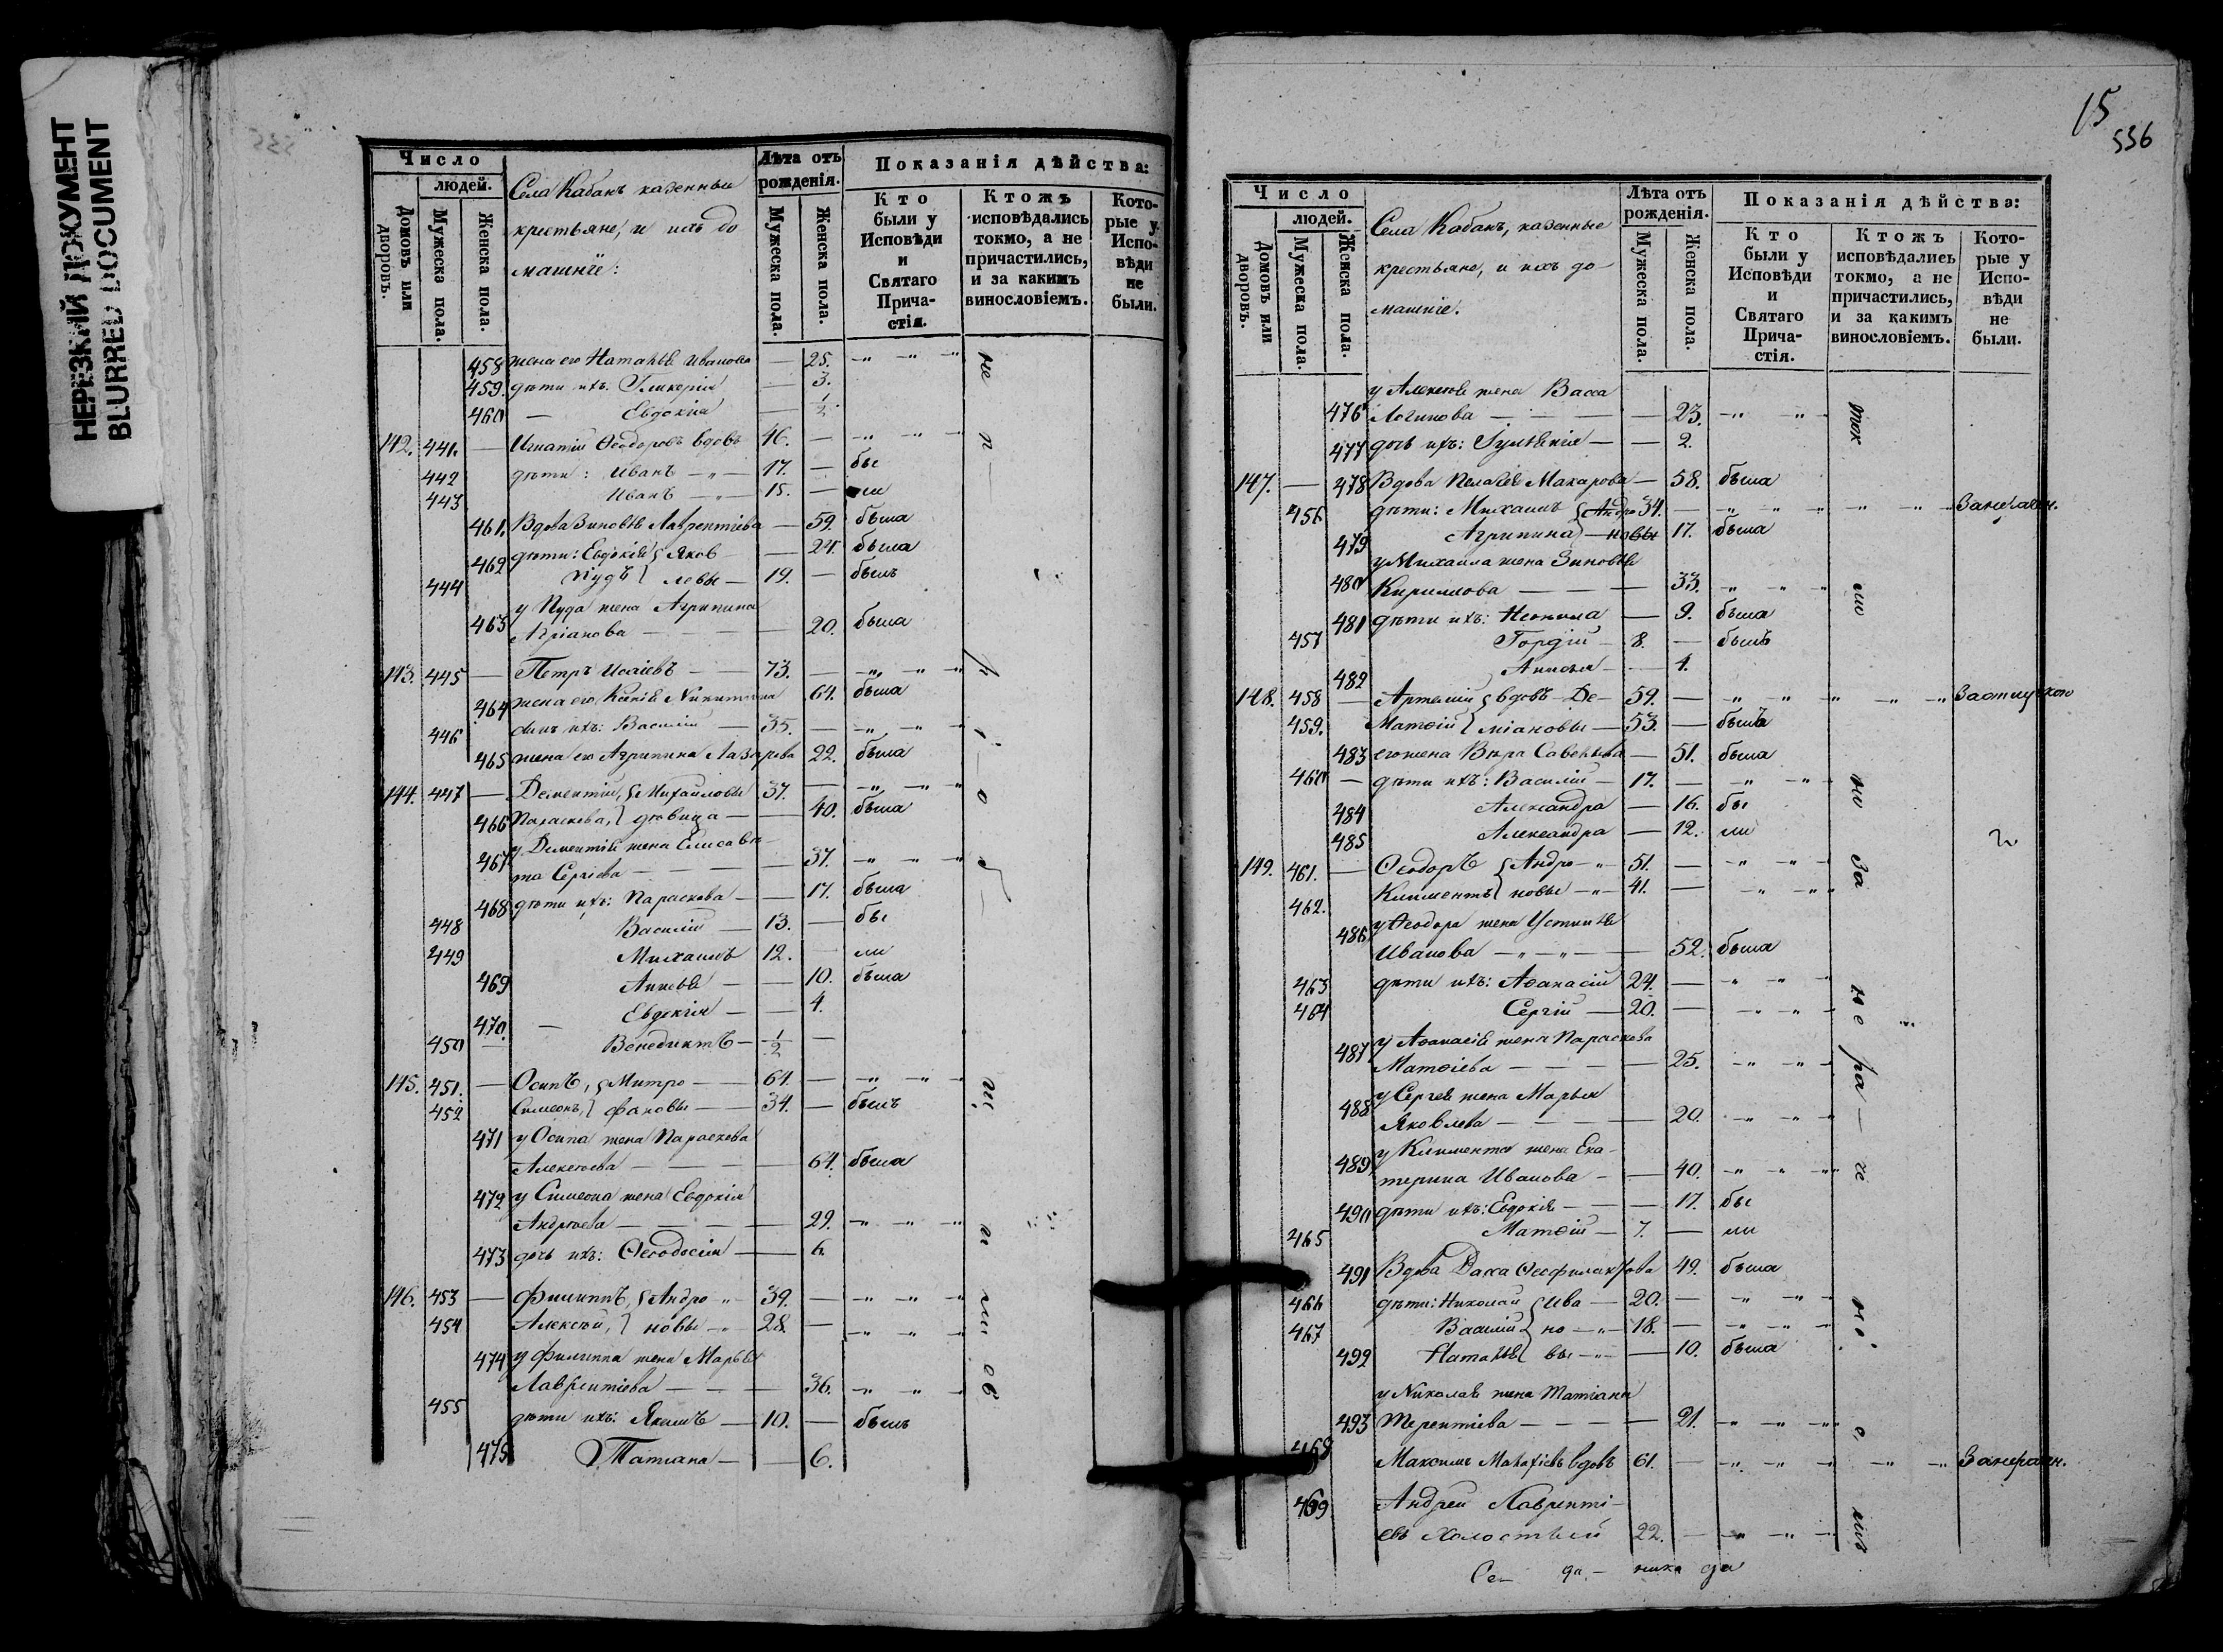 НЕРЕЗКИЙ ДОКУМЕНТ
BLURRED DOCUMENT
Число
людей.
Домовъ или дворовъ.
Мужеска пола.
Женска пола.
Села Кабанъ казенныи
крестьяне, и ихъ до
машнiе:
Лѣта отъ рожденія.
Мужеска пола.
Женска пола.
Показанія дѣйства:
Кто были у Исповѣди и Святаго Прича-стія.
Ктожъ исповѣдались токмо, а не причастились, и за какимъ винословіемъ.
Кото-рые у Испо-вѣди не были.
458 жена его Наталья Иванова — 25.
459. дѣти ихъ: Гликерія — 3.
460 — Евдокія — 1/2
142. 441. — Игнатій Ѳеодоровъ вдовъ 46. —
442 дѣти: Иванъ — 17. — бы
443 Иванъ — 15. — ли
461. Вдова Зиновья Лаврентіева — 59. была
462 дѣти: Евдокія Яков — 24. была
444 Пудъ левы — 19. — былъ
463 у Пуда жена Агрипина
— 20. была
143. 445 — Петръ Исаіевъ — 73. —
464 жена его Ксенія Никитина 61. была
446 сынъ ихъ: Василій — 35. —
465 жена его Агрипина Лазарева 22. была
144. 447 — Дементій, Михайловы 37. —
466 Параскева, дѣвица — 40. была
467 у Дементія жена Елисаве
та Сергіева — 37.
468 дѣти ихъ: Параскева — 17. была
448 Василій — 13. — бы
449 Михаилъ 12. — ли
469 — 10. была
470. — Евдокія — 4.
450 — Венедиктъ — 1/2 —
145. 451. — Осипъ, Митро — 64. —
452 Симеонъ, фановы — 34. — былъ
471 у Осипа жена Параскева
Алексѣева — 64. была
472 у Симеона жена Евдокія
Андреева — 29.
473 дочь ихъ: Ѳеодосія — 6.
146. 453 — Филиппъ, Андро 39. —
454 Алексѣй, новы 28. —
474 у Филиппа жена Марья
Лаврентіева — 36.
455 дѣти ихъ: Якимъ — 10. — былъ
475 Татіана — 6.
15
536
Число
людей.
Домовъ или дворовъ.
Мужеска пола.
Женска пола.
Села Кабанъ, казенные
крестьяне, и ихъ до
машніе.
Лѣта отъ рожденія.
Мужеска пола.
Женска пола.
Показанія дѣйства:
Кто были у Исповѣди и Святаго Прича-стія.
Ктожъ исповѣдались токмо, а не причастились, и за какимъ винословіемъ.
Кото-рые у Испо-вѣди не были.
у Алексѣя жена Васса
476 Логинова — 23.
477 дочь ихъ: — 2.
147. — 478 Вдова Пелагея Макарова — 58. была
456 дѣти: Михаилъ Андро 34. —
479 Агрипина новы 17. была
у Михаила жена Зиновья
480 Кирилова — 33.
481 дѣти ихъ: Неонила — 9. была
457 Гордій — 8. — былъ
482 — 4.
148. 458 — Артемій вдовъ Де — 59. —
459. Матѳій міановы — 53. — былъ
483 его жена Вѣра Савельева — 51. была
460 — дѣти ихъ: Василій — 17. —
484 Александра — 16. бы
485 Александра — 12. ли
149. 461. — Ѳеодоръ Андро 51. —
462. Климентъ новы 41. —
486 у Ѳеодора жена Устинья
Иванова — 52. была
463 дѣти ихъ: Аѳанасій 24. —
464 Сергій — 20. —
487 у Аѳанасія жена Параскева
Матѳіева — 25.
488 у Сергея жена Марья
Яковлева — 20.
489 у Климента жена Ека
терина Иванова — 40.
490 дѣти ихъ: Евдокія — 17. бы
465 Матѳій — 7. — ли
491 Вдова Ѳеофилактова 49. была
466 дѣти: Николай Ива — 20. —
467 Василій но — 18. —
492 Наталья вы — 10. была
у Николая жена Татіана
493 Терентіева — 21.
468 Максимъ вдовъ 61. —
469 Андрей Лавренті-
евъ холостый 22. —